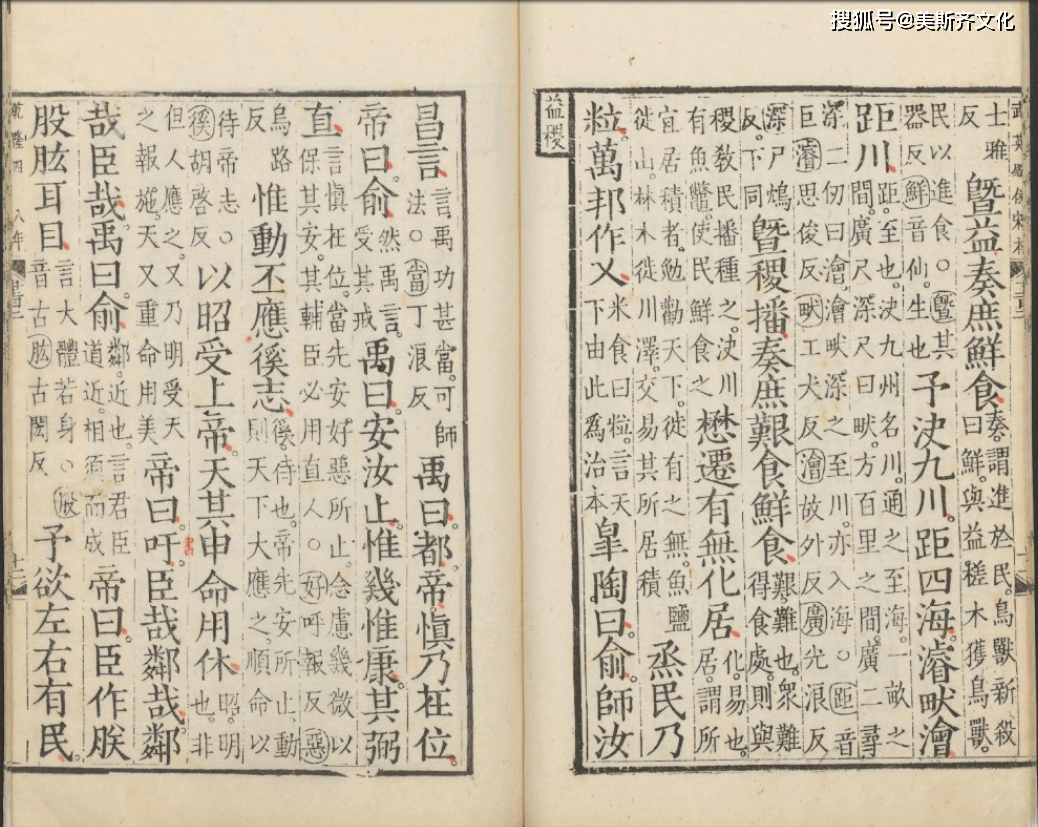 搜狐号@美斯齐文化
士雅反曁益奏庶鮮食奏謂進於民。鳥獸新殺曰鮮。與益槎木獲鳥獸。
民以進食。○曁其器反鮮音仙。生也予決九川。距四海。濬畎澮
距川。距至也。決九州名川。通之至海。一畝之間。廣尺深尺曰畎。方百里之間。廣二尋
深二仞曰澮。澮畎深之至川。亦入海。○距音巨濬思俊反畎工犬反澮故外反廣光浪反
深尸鴆反。下同曁稷播。奏庶艱食鮮食。艱難也。衆難得食處。則與
稷敎民播種之。決川有魚鱉。使民鮮食之懋遷有無化居。化易也。居謂所
宜居積者。勉勸天下。徙有之無。魚鹽徙山。林木徙川澤。交易其所居積烝民乃
粒。萬邦作乂。米食曰粒。言天下由此爲治本皐陶曰。俞。師汝
益稷
昌言。言禹功甚當。可師法。○當丁浪反禹曰。都。帝。愼乃在位。
帝曰。俞。然禹言。受其戒禹曰。安汝止。惟幾惟康。其弼
直。言愼在位。當先安好惡所止。念慮幾微以保其安。其輔臣必用直人。○好呼報反惡
烏路反惟動丕應徯志。徯。待也。帝先安所止。動則天下大應之。順命以
待帝志。○徯胡啓反以昭受上帝。天其申命用休。昭。明也。非
但人應之。又乃明受天之報施。天又重命用美帝曰。吁。臣哉鄰哉。鄰
哉臣哉。禹曰。俞。鄰。近也。言君臣道近。相須而成帝曰。臣作朕
股肱耳目。言大體若身。○股音古肱古閎反予欲左右有民。